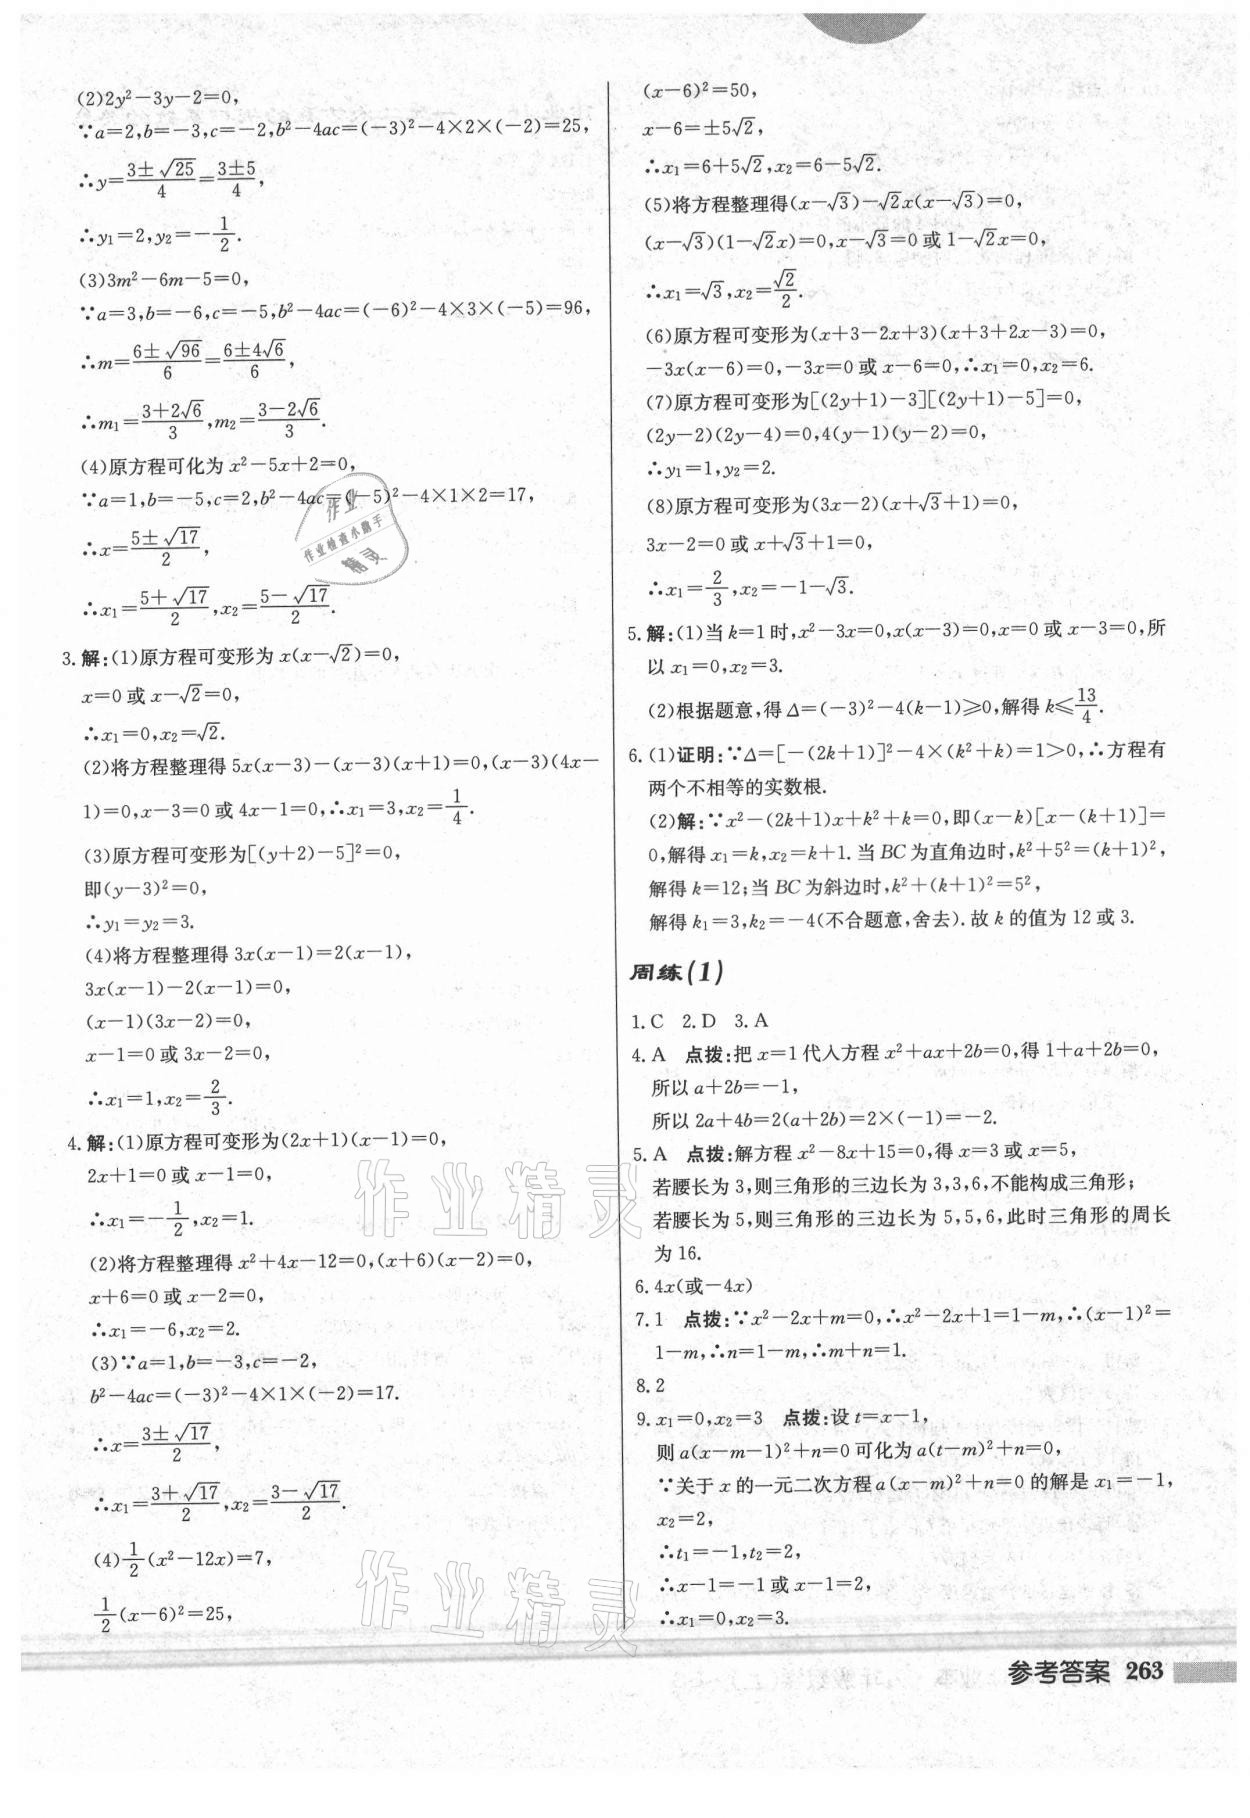 (2)2y²－3y－2＝0,
∵a＝2,b＝－3,c＝－2,b²－4ac＝(－3)²－4×2×(－2)＝25,
∴y＝(3±√25)/4＝(3±5)/4,
∴y₁＝2,y₂＝－1/2.
(3)3m²－6m－5＝0,
∵a＝3,b＝－6,c＝－5,b²－4ac＝(－6)²－4×3×(－5)＝96,
∴m＝(6±√96)/6＝(6±4√6)/6,
∴m₁＝(3＋2√6)/3,m₂＝(3－2√6)/3.
(4)原方程可化为 x²－5x＋2＝0,
∵a＝1,b＝－5,c＝2,b²－4ac＝(－5)²－4×1×2＝17,
∴x＝(5±√17)/2,
∴x₁＝(5＋√17)/2,x₂＝(5－√17)/2.
3.解:(1)原方程可变形为 x(x－√2)＝0,
x＝0 或 x－√2＝0,
∴x₁＝0,x₂＝√2.
(2)将方程整理得 5x(x－3)－(x－3)(x＋1)＝0,(x－3)(4x－
1)＝0,x－3＝0 或 4x－1＝0,∴x₁＝3,x₂＝1/4.
(3)原方程可变形为[(y＋2)－5]²＝0,
即(y－3)²＝0,
∴y₁＝y₂＝3.
(4)将方程整理得 3x(x－1)＝2(x－1),
3x(x－1)－2(x－1)＝0,
(x－1)(3x－2)＝0,
x－1＝0 或 3x－2＝0,
∴x₁＝1,x₂＝2/3.
4.解:(1)原方程可变形为(2x＋1)(x－1)＝0,
2x＋1＝0 或 x－1＝0,
∴x₁＝－1/2,x₂＝1.
(2)将方程整理得 x²＋4x－12＝0,(x＋6)(x－2)＝0,
x＋6＝0 或 x－2＝0,
∴x₁＝－6,x₂＝2.
(3)∵a＝1,b＝－3,c＝－2,
b²－4ac＝(－3)²－4×1×(－2)＝17.
∴x＝(3±√17)/2,
∴x₁＝(3＋√17)/2,x₂＝(3－√17)/2.
(4)1/2(x²－12x)＝7,
1/2(x－6)²＝25,
(x－6)²＝50,
x－6＝±5√2,
∴x₁＝6＋5√2,x₂＝6－5√2.
(5)将方程整理得(x－√3)－√2x(x－√3)＝0,
(x－√3)(1－√2x)＝0,x－√3＝0 或 1－√2x＝0,
∴x₁＝√3,x₂＝√2/2.
(6)原方程可变形为(x＋3－2x＋3)(x＋3＋2x－3)＝0,
－3x(x－6)＝0,－3x＝0 或 x－6＝0,∴x₁＝0,x₂＝6.
(7)原方程可变形为[(2y＋1)－3][(2y＋1)－5]＝0,
(2y－2)(2y－4)＝0,4(y－1)(y－2)＝0,
∴y₁＝1,y₂＝2.
(8)原方程可变形为(3x－2)(x＋√3＋1)＝0,
3x－2＝0 或 x＋√3＋1＝0,
∴x₁＝2/3,x₂＝－1－√3.
5.解:(1)当 k＝1 时,x²－3x＝0,x(x－3)＝0,x＝0 或 x－3＝0,所
以 x₁＝0,x₂＝3.
(2)根据题意,得 Δ＝(－3)²－4(k－1)≥0,解得 k≤13/4.
6.(1)证明:∵Δ＝[－(2k＋1)]²－4×(k²＋k)＝1＞0,∴方程有
两个不相等的实数根.
(2)解:∵x²－(2k＋1)x＋k²＋k＝0,即(x－k)[x－(k＋1)]＝
0,解得 x₁＝k,x₂＝k＋1. 当 BC 为直角边时,k²＋5²＝(k＋1)²,
解得 k＝12;当 BC 为斜边时,k²＋(k＋1)²＝5²,
解得 k₁＝3,k₂＝－4(不合题意,舍去). 故 k 的值为 12 或 3.
周练(1)
1.C 2.D 3.A
4.A 点拨:把 x＝1 代入方程 x²＋ax＋2b＝0,得 1＋a＋2b＝0,
所以 a＋2b＝－1,
所以 2a＋4b＝2(a＋2b)＝2×(－1)＝－2.
5.A 点拨:解方程 x²－8x＋15＝0,得 x＝3 或 x＝5,
若腰长为 3,则三角形的三边长为 3,3,6,不能构成三角形;
若腰长为 5,则三角形的三边长为 5,5,6,此时三角形的周长
为 16.
6.4x(或－4x)
7.1 点拨:∵x²－2x＋m＝0,∴x²－2x＋1＝1－m,∴(x－1)²＝
1－m,∴n＝1－m,∴m＋n＝1.
8.2
9.x₁＝0,x₂＝3 点拨:设 t＝x－1,
则 a(x－m－1)²＋n＝0 可化为 a(t－m)²＋n＝0,
∵关于 x 的一元二次方程 a(x－m)²＋n＝0 的解是 x₁＝－1,
x₂＝2,
∴t₁＝－1,t₂＝2,
∴x－1＝－1 或 x－1＝2,
∴x₁＝0,x₂＝3.
参考答案 263
作业
作业检查小助手
精灵
作业精灵
作业精灵